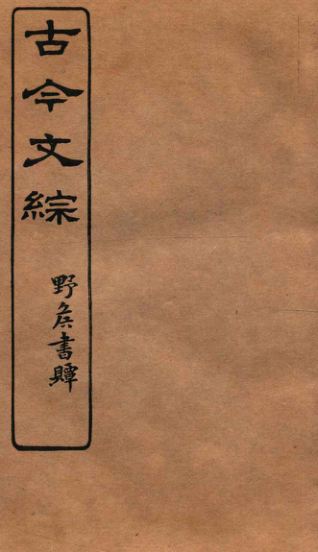 古今文綜
野侯書𧸖